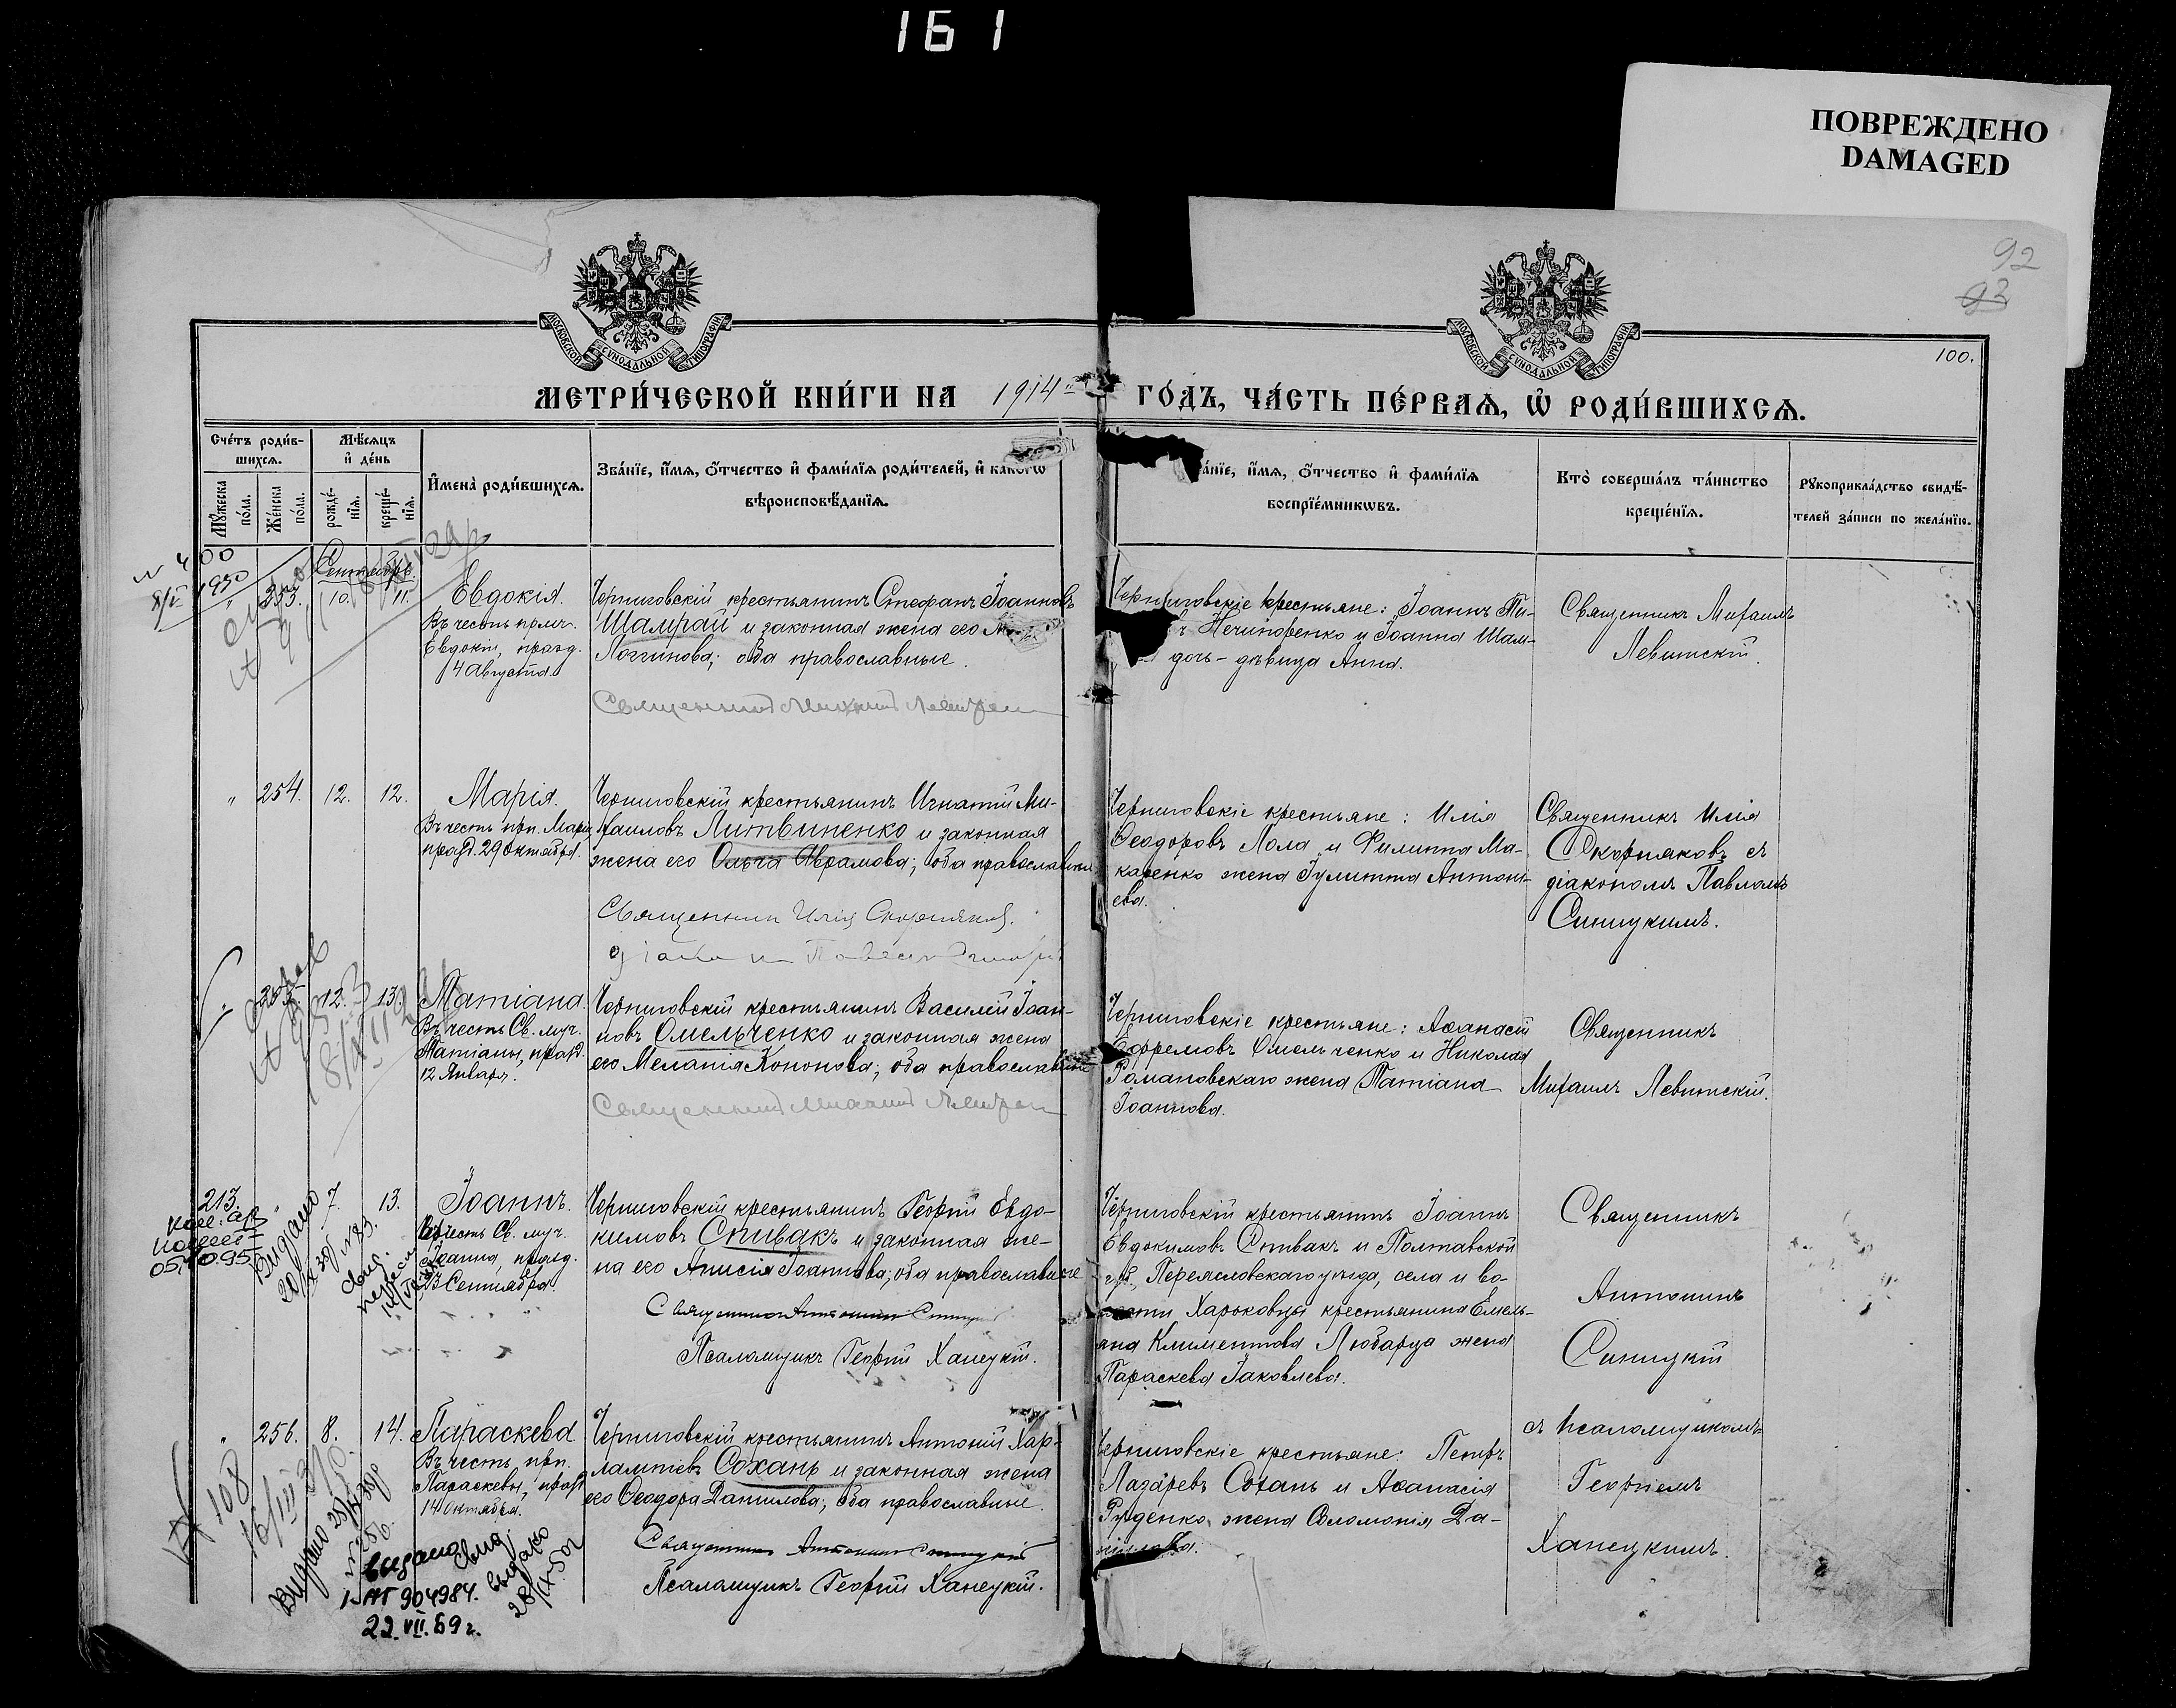 161
ПОВРЕЖДЕНО
DAMAGED
92
93
100.
МОСКОВСКОЙ СУНОДАЛЬНОЙ ТИПОГРАФІИ
МОСКОВСКОЙ СУНОДАЛЬНОЙ ТИПОГРАФІИ
МЕТРИ́ЧЕСКОЙ КНИ́ГИ НА 1914 ГО́ДЪ, ЧА́СТЬ ПЕ́РВАѦ, Ѡ РОДИ́ВШИХСѦ.
Сче́тъ роди́в-
шихсѧ.
Мꙋ́жеска
по́ла.
Же́нска
по́ла.
Мѣ́сѧцъ
и҆ де́нь
рожде́-
нїѧ.
креще́-
нїѧ.
И҆мена̀ роди́вшихсѧ.
Зва́нїе, и҆́мѧ, ѻ҆́тчество и҆ фами́лїѧ роди́телей, и҆ како́гѡ
вѣроисповѣ́данїѧ.
а́нїе, и҆́мѧ, ѻ҆́тчество и҆ фами́лїѧ
воспрїе́мникѡвъ.
Кто̀ соверша́лъ та́инство
креще́нїѧ.
Рꙋкоприкла́дство свидѣ́-
телей за́писи по жела́нїю.
Сентябрь.
" 253. 10. 11.
Евдокія.
Въ честь прмч.
Евдокіи, празд.
4 Августа.
Черниговскій крестьянинъ Стефанъ Іоанновъ
Шамрай и законная жена его
Логгинова; оба православные.
Священникъ Михаилъ Левитскій
Черниговскіе крестьяне: Іоаннъ Ти-
Нечипоренко и Іоанна Шам-
дочь - дѣвица Анна.
Священникъ Михаилъ
Левитскій.
" 254. 12. 12.
Марія.
Въ честь прп. Маріи,
празд. 29 октября.
Черниговскій крестьянинъ Игнатій Ми-
хаиловъ Литвиненко и законная
жена его Ольга Аврамова; оба православные
Священникъ Илія Скорняковъ.
Черниговскіе крестьяне: Илія
Ѳеодоровъ Лола и Филиппа Ма-
каренко жена Іулитта Антоні-
ева.
Священникъ Илія
Скорняковъ съ
діакономъ Павломъ
Синицкимъ.
" 255. 12. 13.
Татіана.
Въ честь Св. муч.
Татіаны, празд.
12 Января.
Черниговскій крестьянинъ Василій Іоан-
новъ Омельченко и законная жена
его Меланія Кононова; оба православные
Священникъ Михаилъ Левитскій
Черниговскіе крестьяне: Аѳанасій
Ефремовъ Омельченко и Николая
Романовскаго жена Татіана
Іоаннова.
Священникъ
Михаилъ Левитскій.
213. " 7. 13.
05.10.95
Видано
Іоаннъ.
Въ честь Св. муч.
Іоанна, празд.
Сентября.
Черниговскій крестьянинъ Георгій Евдо-
кимовъ Спивакъ и законная же-
на его Анисія Іоаннова; оба православные
Священникъ Антонинъ Синицкій
Псаломщикъ Георгій Ханецкій.
Черниговскій крестьянинъ Іоаннъ
Евдокимовъ Спивакъ и Полтавской
губ., Переяславскаго уѣзда, села и во-
лости Харьковцы крестьянина Емель-
яна Климентова Любарца жена
Параскева Іаковлева.
Священникъ
Антонинъ
Синицкій
съ псаломщикомъ
Георгіемъ
Ханецкимъ.
" 256. 8. 14.
Параскева.
Въ честь прп.
Параскевы, празд.
14 октября.
Черниговскій крестьянинъ Антоній Хар-
лампіевъ Сохань и законная жена
его Ѳеодора Даниилова; оба православные.
Священникъ Антонинъ Синицкій
Псаломщикъ Георгій Ханецкій.
Черниговскіе крестьяне: Петръ
Лазаревъ Сохань и Аѳанасія
Руденко жена Соломонія Да-
ниилова.
108
16/III
Видано
видано
904984.
22.VII.69г.